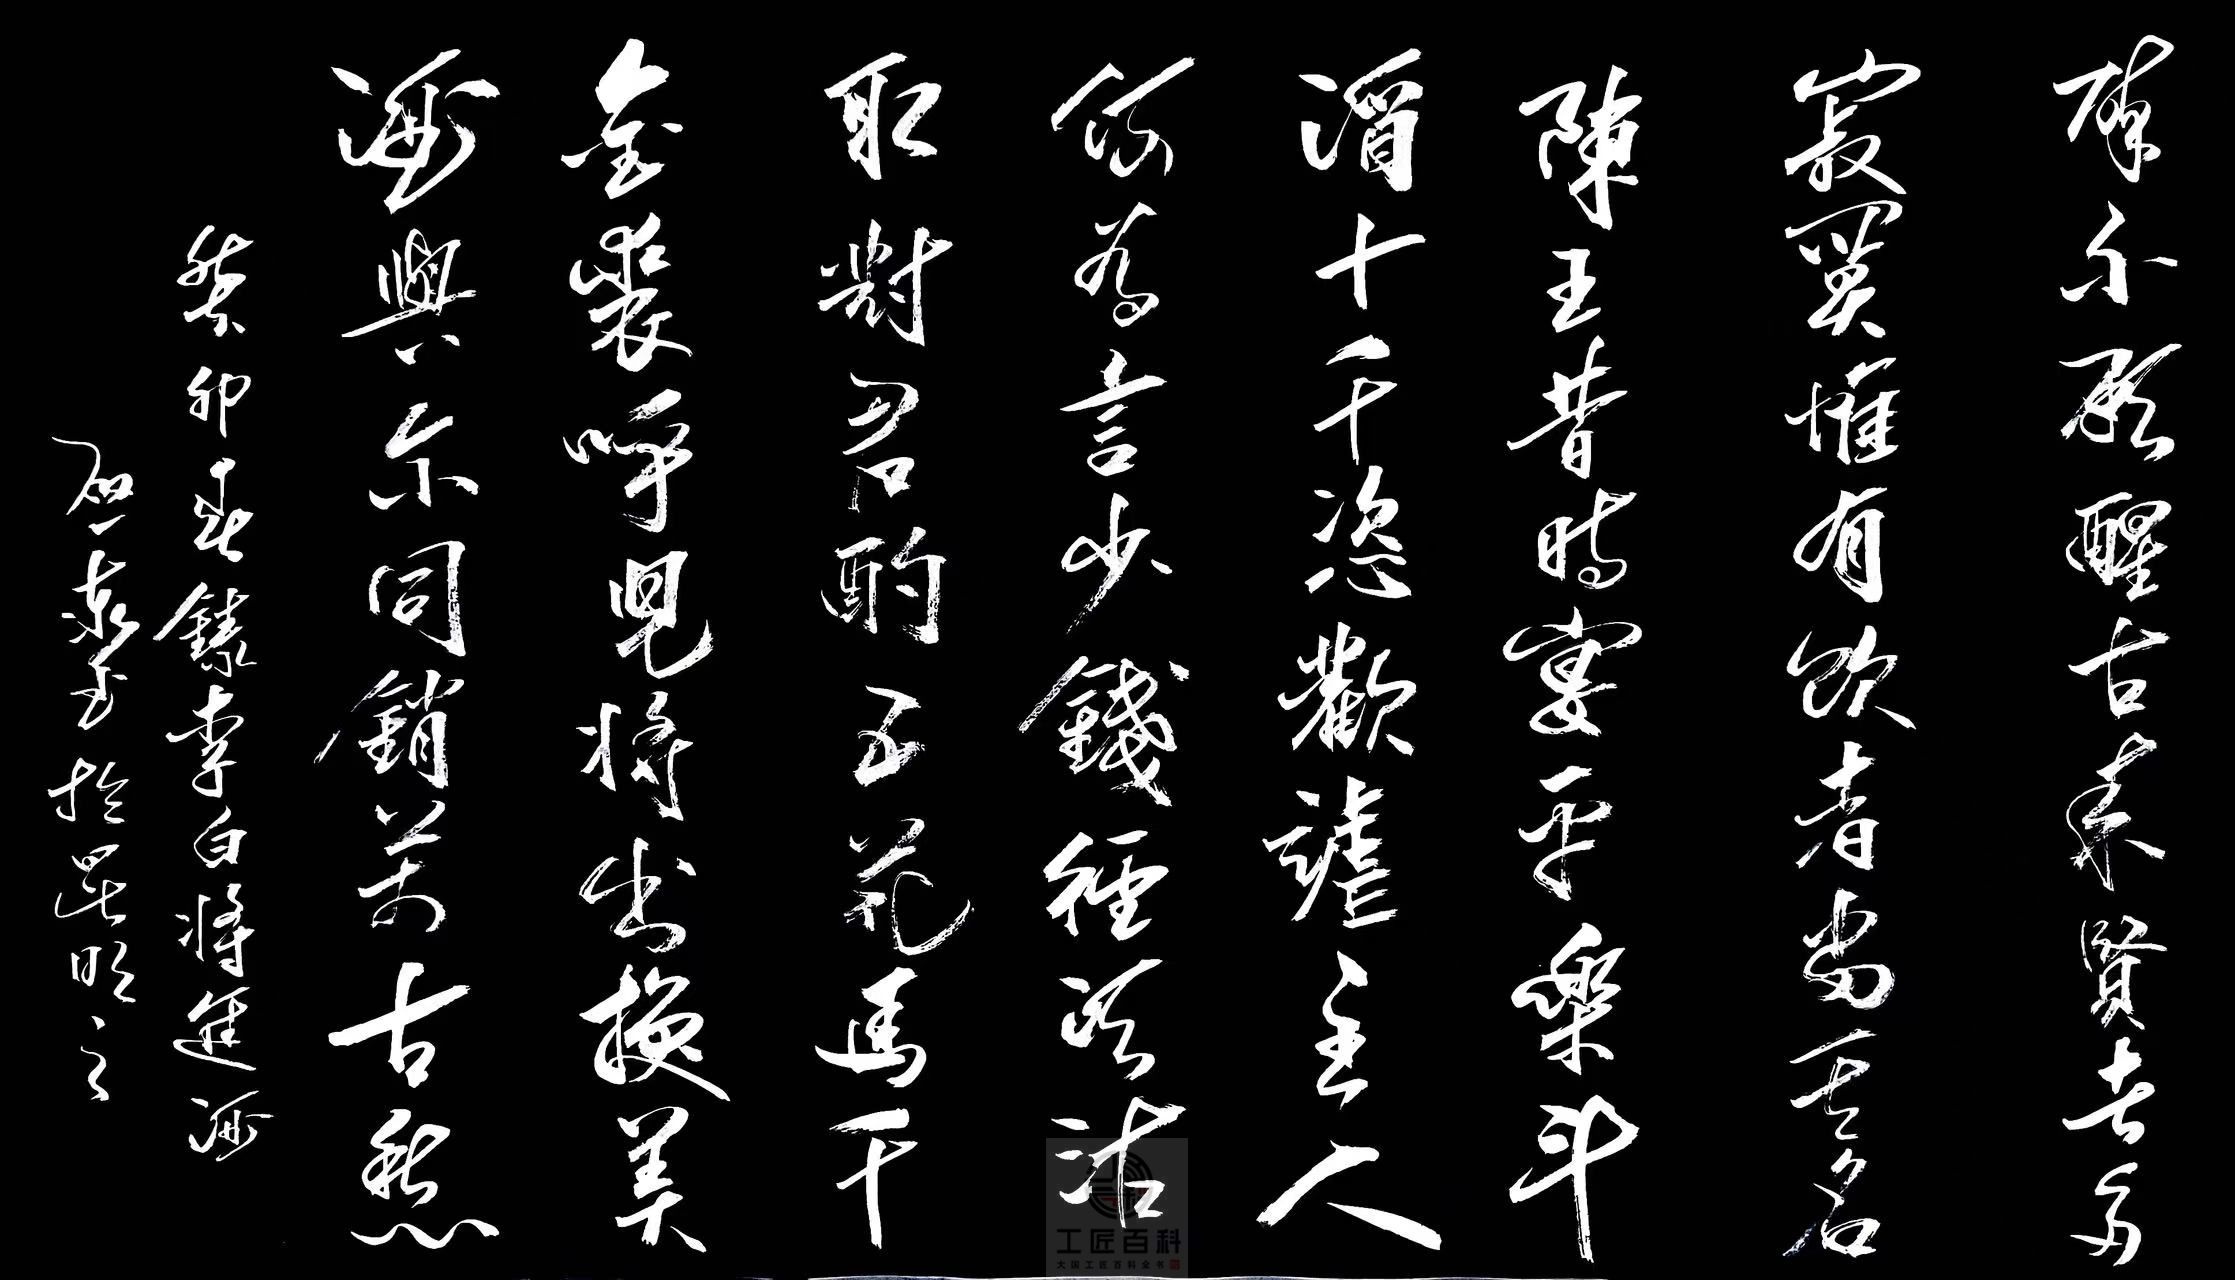 醉不願醒古来賢者多
寂寞惟有飲者留其名
陳王昔時宴平樂斗
酒十千恣歡謔主人
何為言少錢徑須沽
取對君酌五花馬千
金裘呼兒將出換美
酒與尔同銷萬古愁
癸卯春錄李白將進酒
於昆明之
工匠百科
大国工匠百科全书